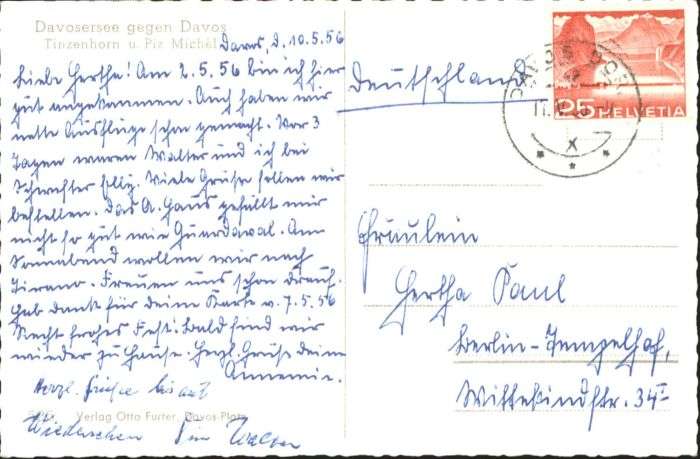 Davosersee gegen Davos
Tinzenhorn u. Piz Michèl
Davos, d. 10.5.56
Liebe Hertha! Am 2.5.56 bin ich hier
gut angekommen. Auch haben wir
nette Ausflüge schon gemacht. Vor 3
Tagen waren Walter und ich bei
Schwester Elly. Viele Grüße sollen wir
bestellen. Das A. Haus gefällt mir
nicht so gut wie Guardaval. Am
Sonnabend wollen wir nach
Tirano. Freuen uns schon drauf.
Hab Dank für deine Karte v. 7.5.56
Recht frohes Fest. Bald sind wir
wieder zu Hause. Herzl. Grüße deine
Annemie.
Herzl. Grüße bis auf
Wiedersehen
Verlag Otto Furter, Davos-Platz
Deutschland
25 HELVETIA
X
Fräulein
Hertha Paul
Berlin-Tempelhof,
Wittekindstr. 34 I